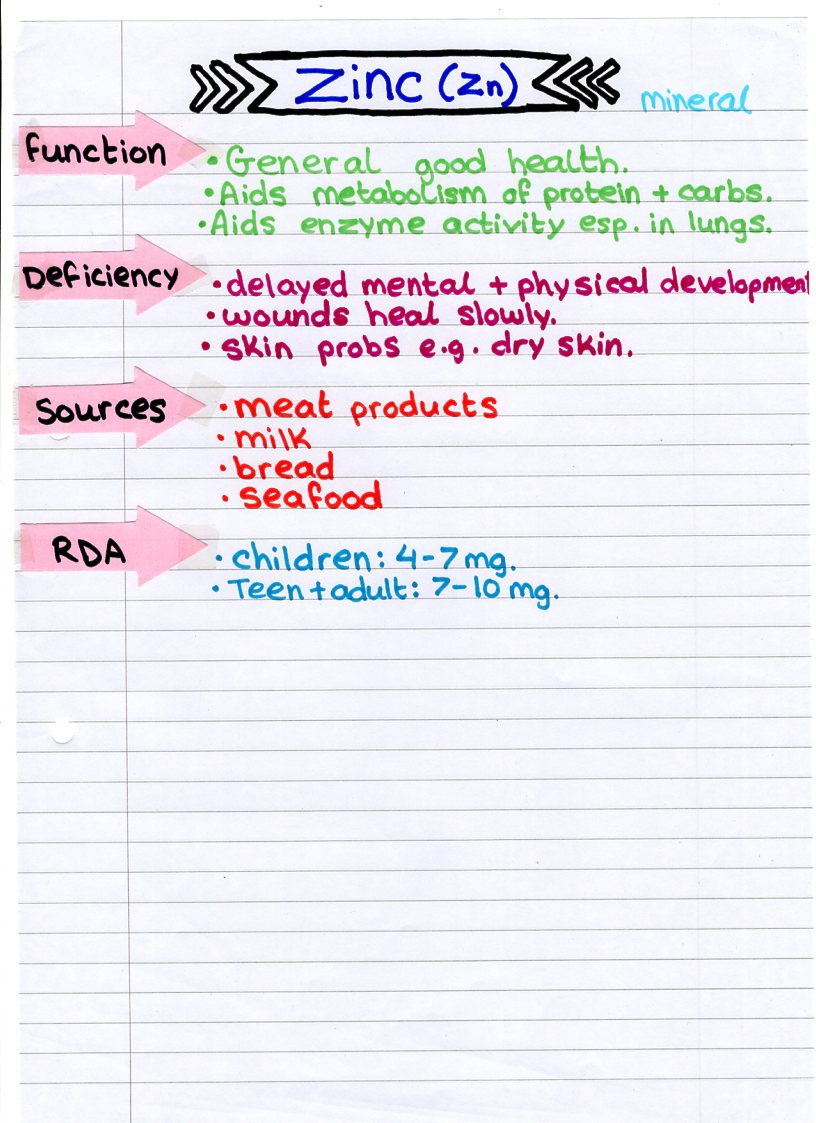 Zinc (Zn)
mineral
Function
• General good health.
• Aids metabolism of protein + carbs.
• Aids enzyme activity esp. in lungs.
Deficiency
• delayed mental + physical development
• wounds heal slowly.
• skin probs e.g. dry skin.
Sources
• meat products
• milk
• bread
• seafood
RDA
• children: 4-7mg.
• Teen + adult: 7-10 mg.